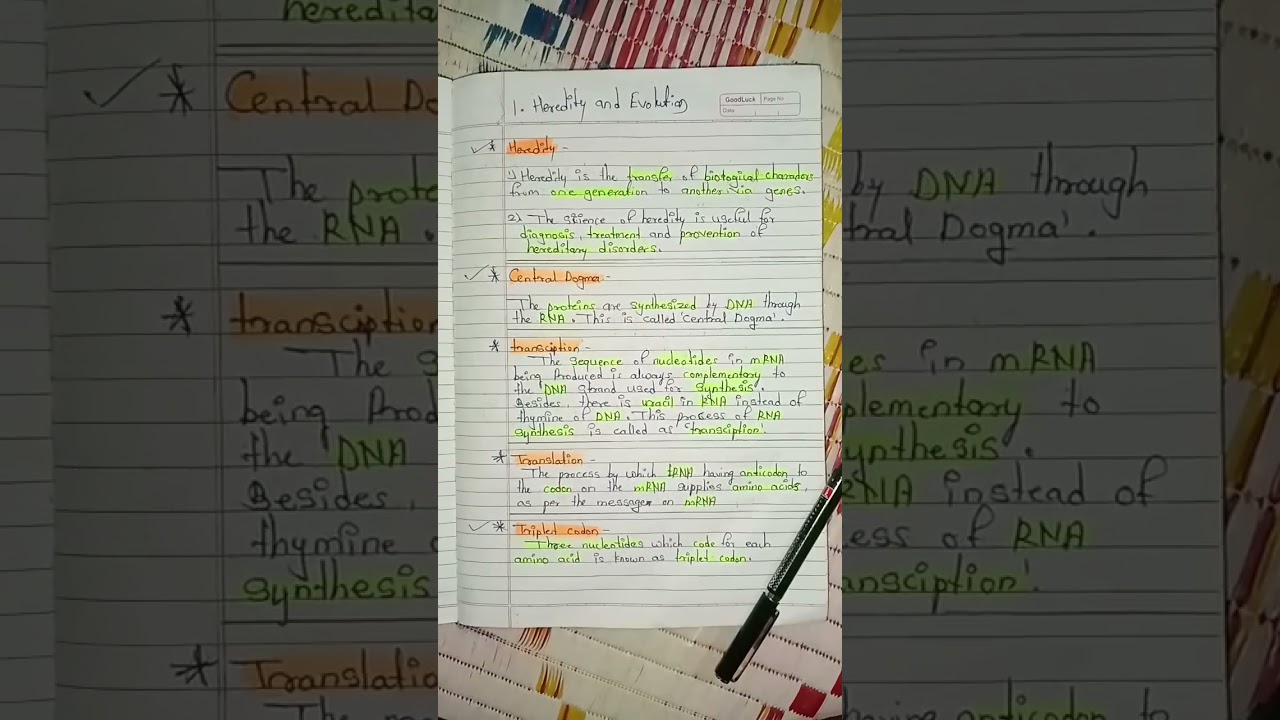 1. Heredity and Evolution
GoodLuck Page No
Date
* Heredity -
1) Heredity is the transfer of biological characters
from one generation to another via genes.
2) The science of heredity is useful for
diagnosis, treatment and provention of
hereditary disorders.
* Central Dogma -
The proteins are synthesized by DNA through
the RNA. This is called 'Central Dogma'.
* transciption -
The sequence of nucleotides in mRNA
being Produced is always complementary to
the DNA strand used for synthesis.
Besides, there is uracil in RNA instead of
thymine of DNA. This process of RNA
synthesis is called as 'transciption'.
* Translation -
The process by which tRNA having anticodon to
the codon on the mRNA supplies amino acids,
as per the message on mRNA
* Triplet codon -
Three nucleotides which code for each
amino acid is known as triplet codon.